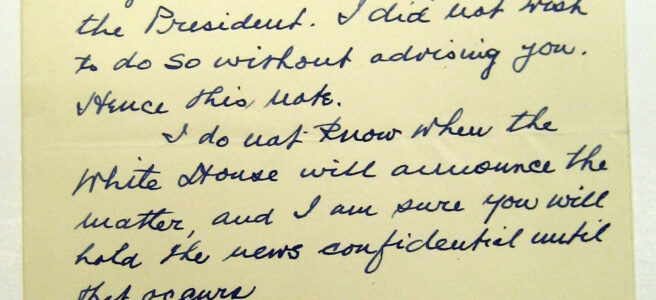 the President. I did not wish
to do so without advising you.
Hence this note.
I do not know when the
White House will announce the
matter, and I am sure you will
hold the news confidential until
that occurs